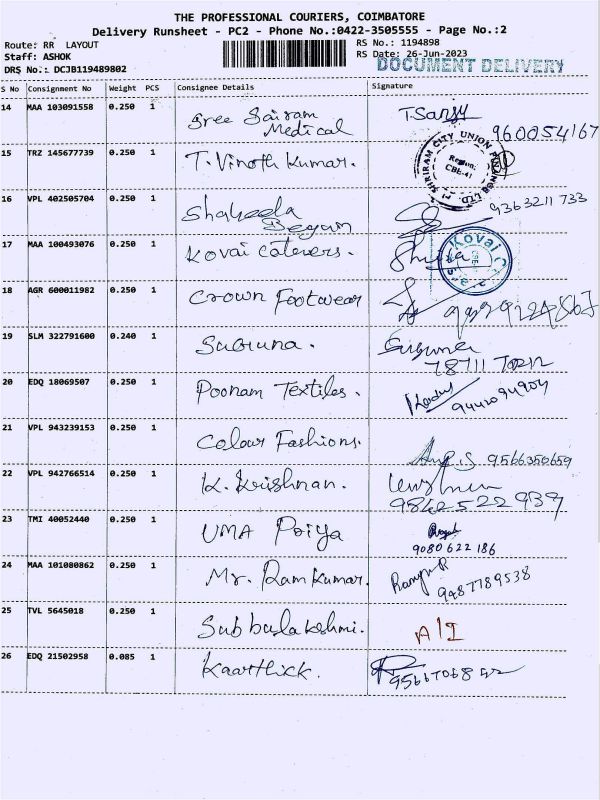 THE PROFESSIONAL COURIERS, COIMBATORE
Delivery Runsheet - PC2 - Phone No.:0422-3505555 - Page No.:2
Route: RR LAYOUT RS No.: 1194898
Staff: ASHOK RS Date: 26-Jun-2023
DRS No.: DCJB119489802 DOCUMENT DELIVERY
S No Consignment No Weight PCS Consignee Details Signature
14 MAA 103091558 0.250 1 Sree Sairam
Medical
960054167
15 TRZ 145677739 0.250 1 T. Vinoth Kumar.
SHRIRAM CITY UNION FINANCE LTD
Region:
CBE-41
16 VPL 402505704 0.250 1 Shakeela
Begum
9363211733
17 MAA 100493076 0.250 1 Kovai Caterers.
Kovai
18 AGR 600011982 0.250 1 Crown Footwear
19 SLM 322791600 0.240 1 Suguna. Suguna
78711
20 EDQ 18069507 0.250 1 Poonam Textiles.
21 VPL 943239153 0.250 1 Colour Fashions.
9566350659
22 VPL 942766514 0.250 1 K. Krishnan.
9842522939
23 TMI 40052440 0.250 1 UMA Priya
9080622186
24 MAA 101080862 0.250 1 Mr. Ram Kumar.
9487789538
25 TVL 5645018 0.250 1 Subbulakshmi.
26 EDQ 21502958 0.085 1 Kaarthick.